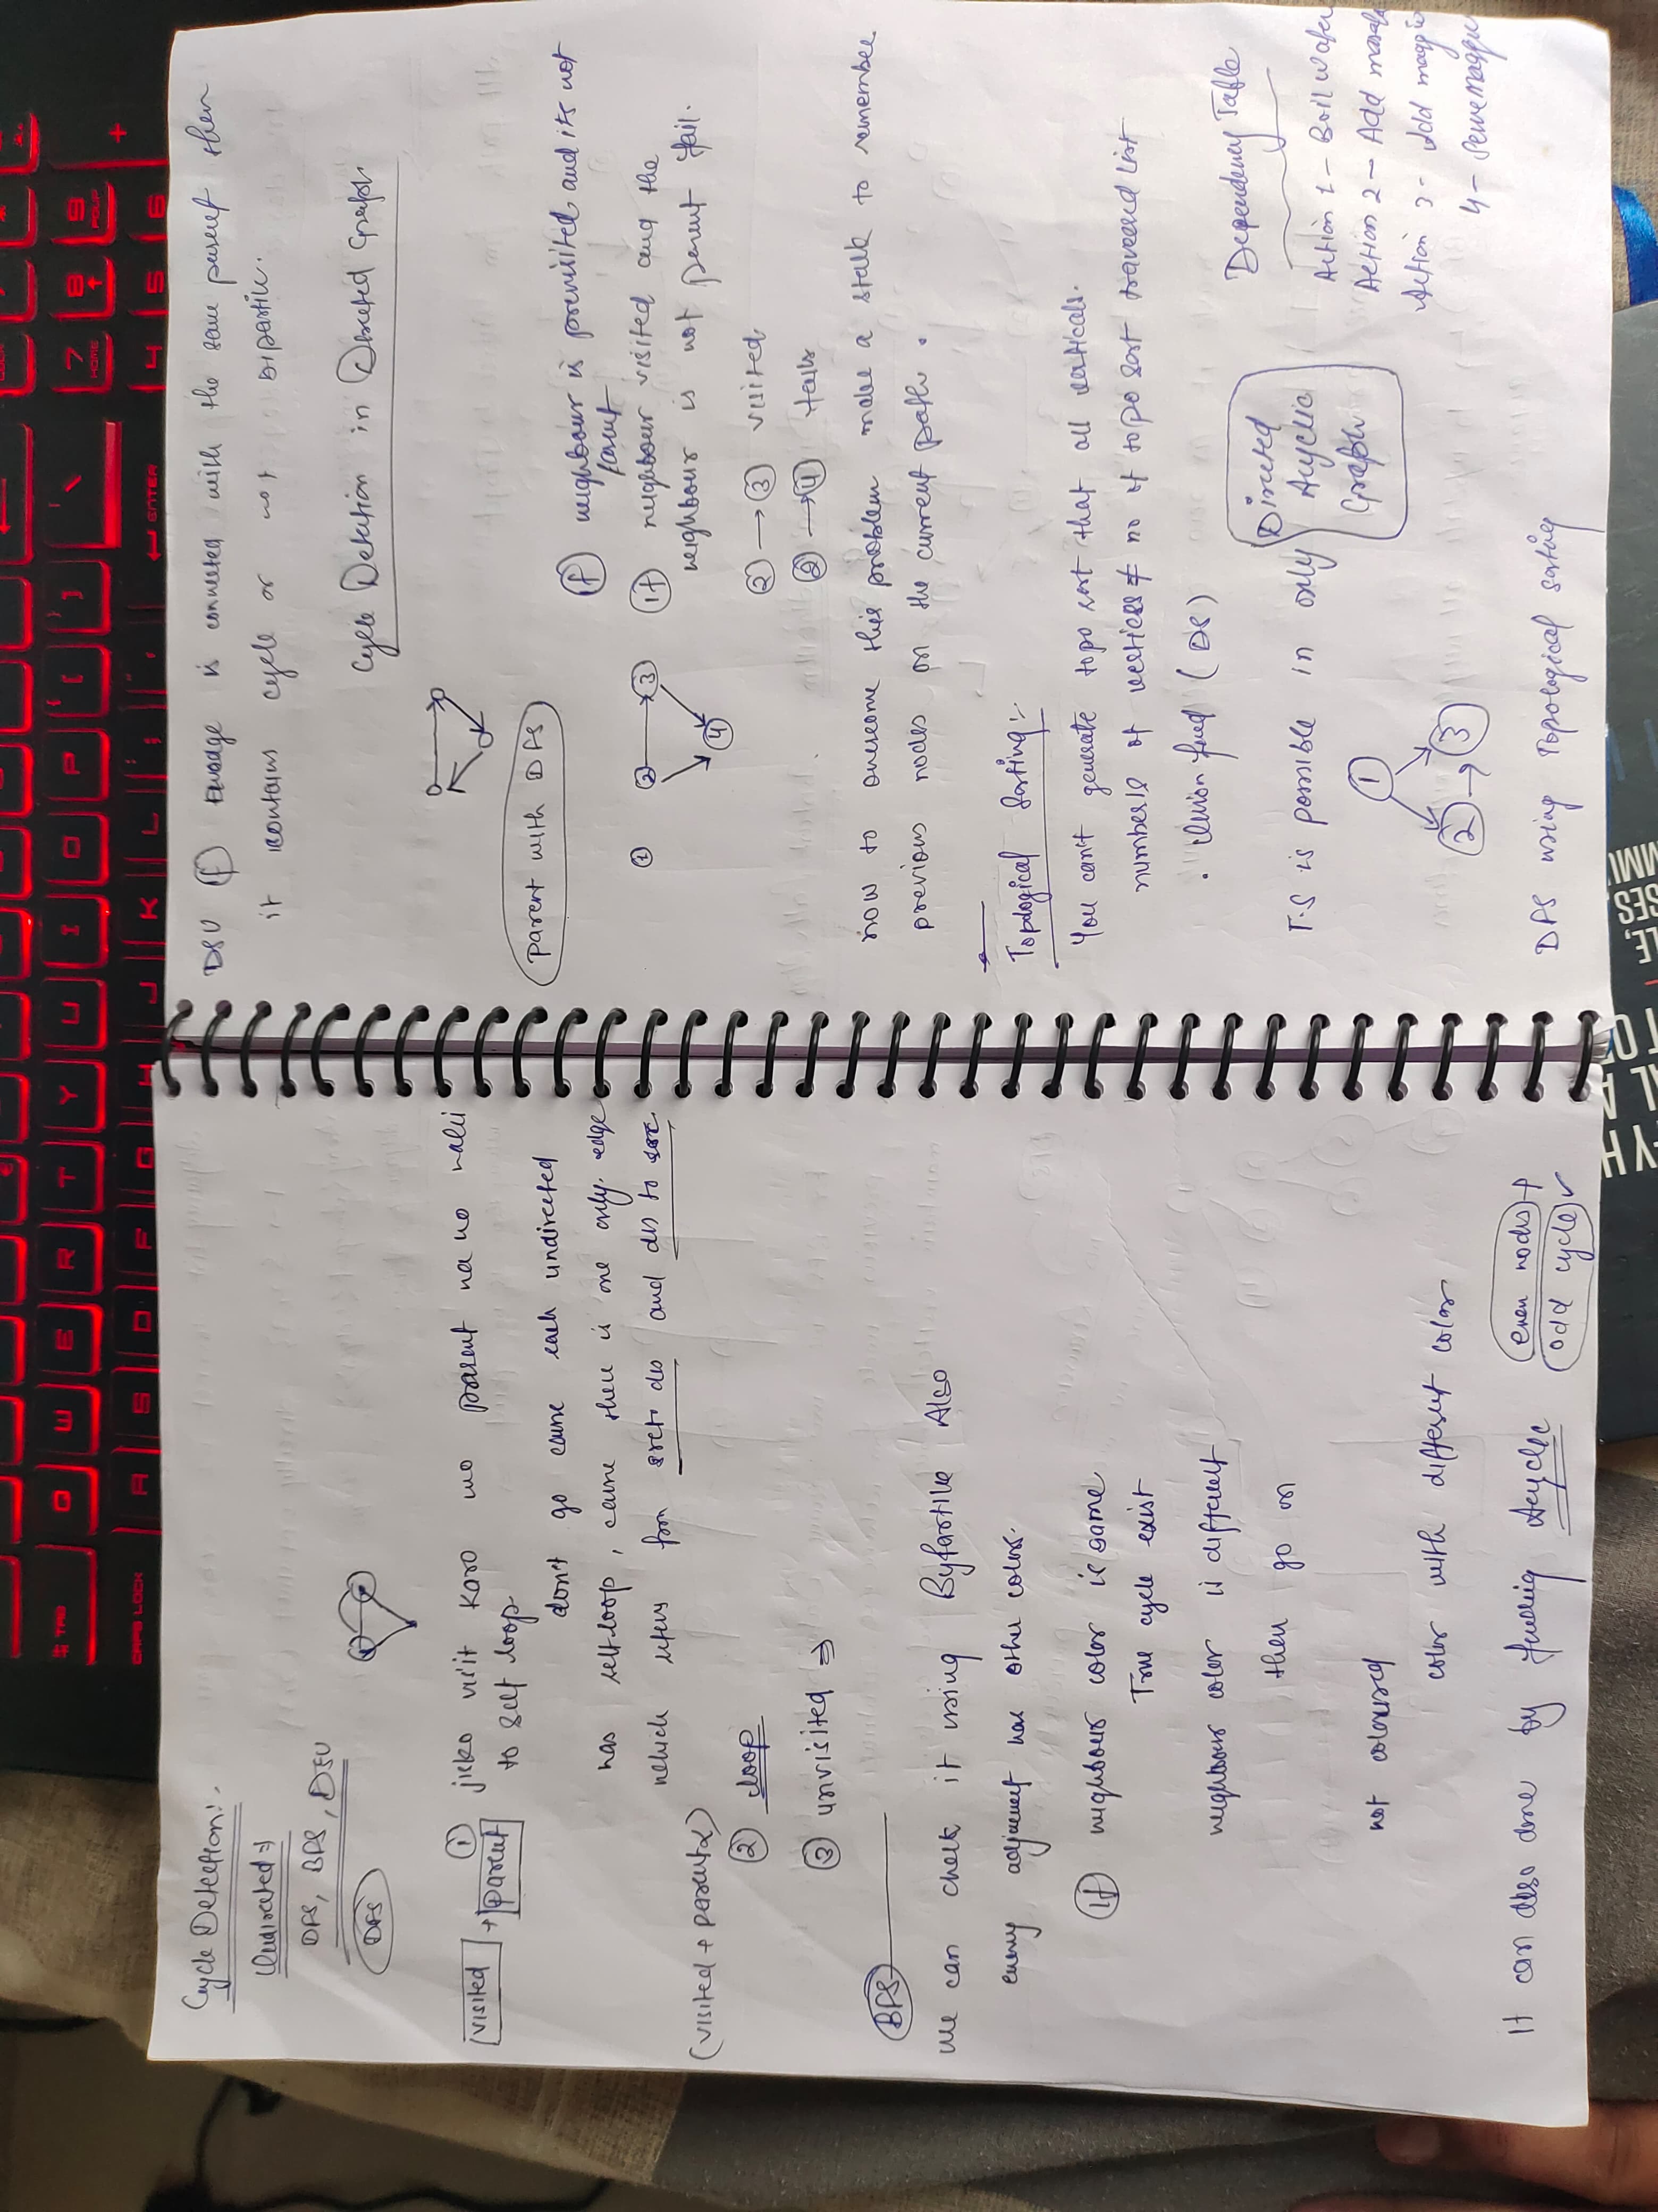 TAB Q W E R T Y U I O P [ ] \ 7 8 9 +
HOME PGUP
CAPS LOCK A S D F G H J K L ; ' ENTER 4 5 6
Cycle Detection:-
Undirected ⇒
DFS, BFS, DSU
DFS
visited + parent
① jisko visit karo wo parent na ho nahi
to self loop
don't go cause each undirected
has self loop, cause there is one only edge
which refers from src to des and des to src
(visited + parent)
② loop
③ unvisited ⇒
BFS
We can check it using Byfartite Also
every adjacent has other color.
If neighbour color is same
True cycle exist
neighbour color is different
then go on
not coloured
color with different color
It can also done by finding Acyclic
even nodes
odd cycle ✓
DSU If edge is connected with the same parent then
it contains cycle or not Bipartite.
Cycle Detection in Directed Graph
parent with DFS
If neighbour is previsited and its not
parent
① 2 → 3
4
If neighbour visited and the
neighbour is not parent fail.
② → ③ visited
② → ④ fails
now to overcome this problem make a stack to remember
previous nodes on the current path.
Topological Sorting:-
You can't generate topo sort that all verticals.
numbers of vertices ≠ no of topo sort traversed list
. Union find (DS)
T.S is possible in only Directed
Acyclic
Graph
1
2 → 3
Dependency Table
Action 1 - Boil water
Action 2 - Add masala
Action 3 - Add maggie
4 - Serve maggie
DFS using Topological sorting